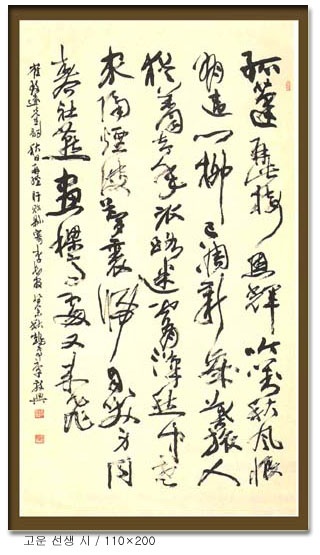 孤蓬再此接恩輝吟對秋風恨
有違門柳已凋新歲葉旅人
猶着去年衣路迷霄漢愁中老
家隔煙波夢裏歸自笑身
春社燕畫樑高處又來飛
崔致遠先生詩 秋日再經盱眙縣寄李長官
고운 선생 시 / 110×200